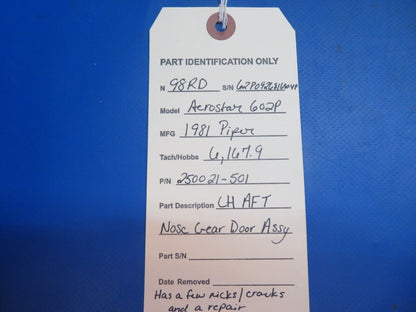 PART IDENTIFICATION ONLY
N 98RD S/N
Model Aerostar 602P
MFG 1981 Piper
Tach/Hobbs 6,167.9
P/N 250021-501
Part Description LH AFT
Nose Gear Door Assy
Part S/N
Date Removed
Has a few nicks/cracks
and a repair